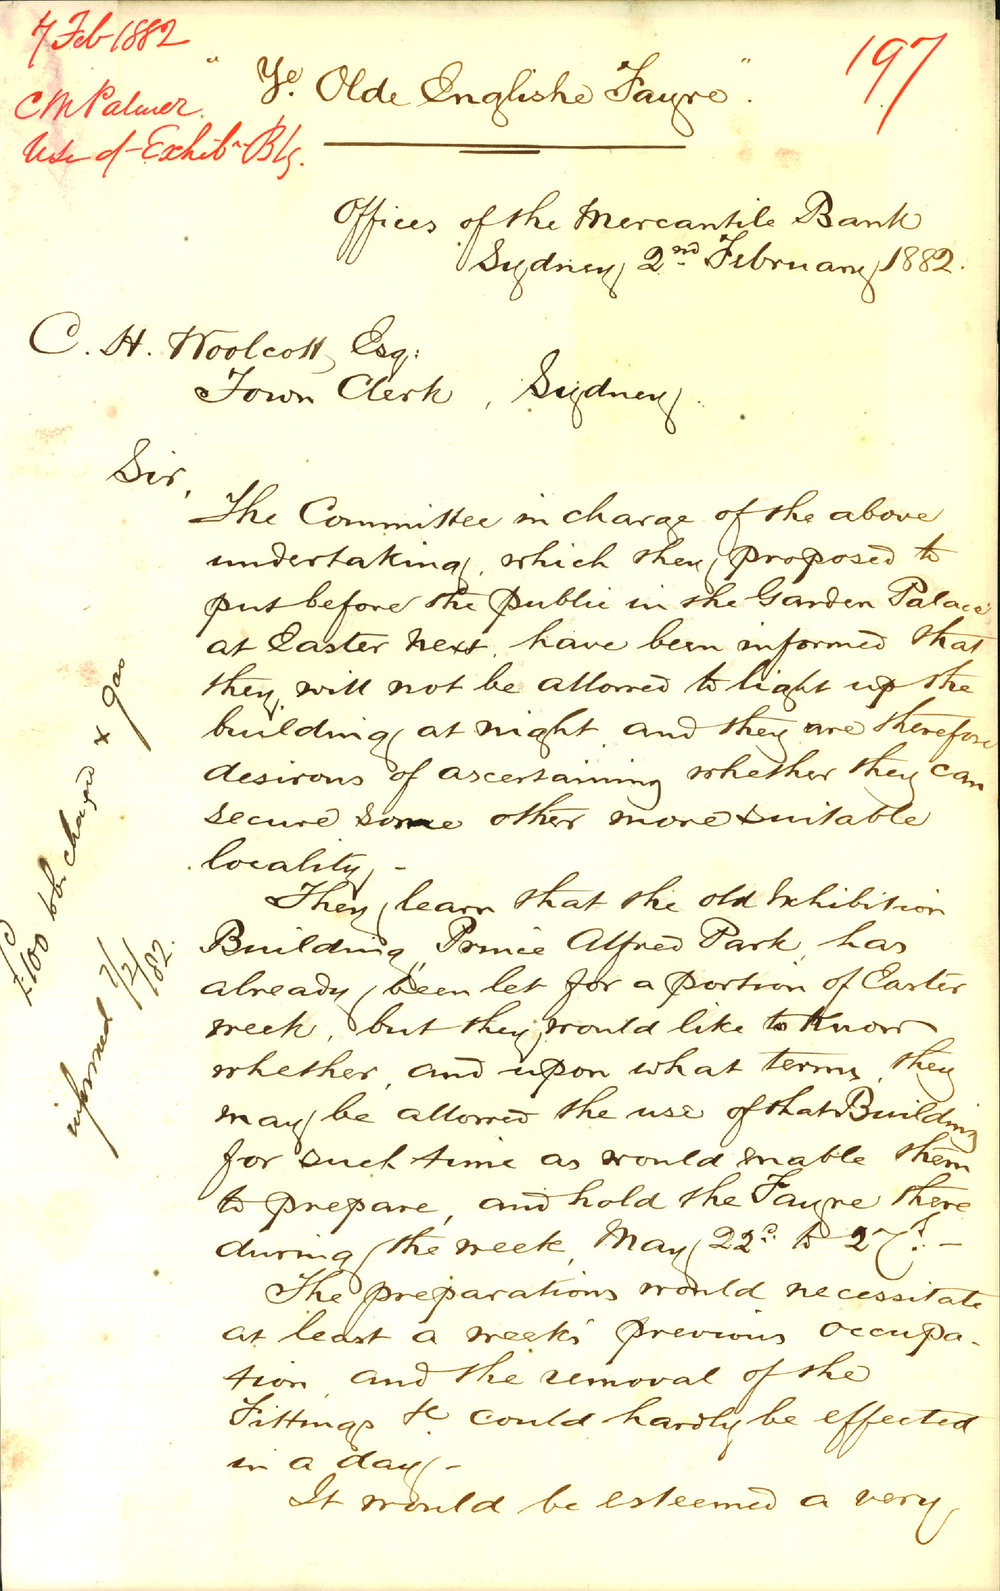 7 Feb 1882
C M Palmer.
Use of Exhibn Blg.
197
"Ye. Olde Englishe Fayre".
Offices of the Mercantile Bank
Sydney 2nd February 1882.
C. H. Woolcott, Esq:
Town Clerk, Sydney.
Sir,
The Committee in charge of the above
undertaking, which they proposed to
put before the public in the Garden Palace
at Easter next, have been informed that
they will not be allowed to light up the
building at night, and they are therefore
desirous of ascertaining whether they can
secure some other more suitable
locality. -
They learn that the old Exhibition
Building, Prince Alfred Park, has
already been let for a portion of Easter
week, but they would like to know
whether, and upon what terms, they
may be allowed the use of that Building
for such time as would enable them
to prepare, and hold the Fayre there
during the week, May 22d. to 27th. -
The preparations would necessitate
at least a week's previous occupa-
tion, and the removal of the
Fittings &c could hardly be effected
in a day. -
It would be esteemed a very
£100 to be charged + gas
informed 7/2/82.